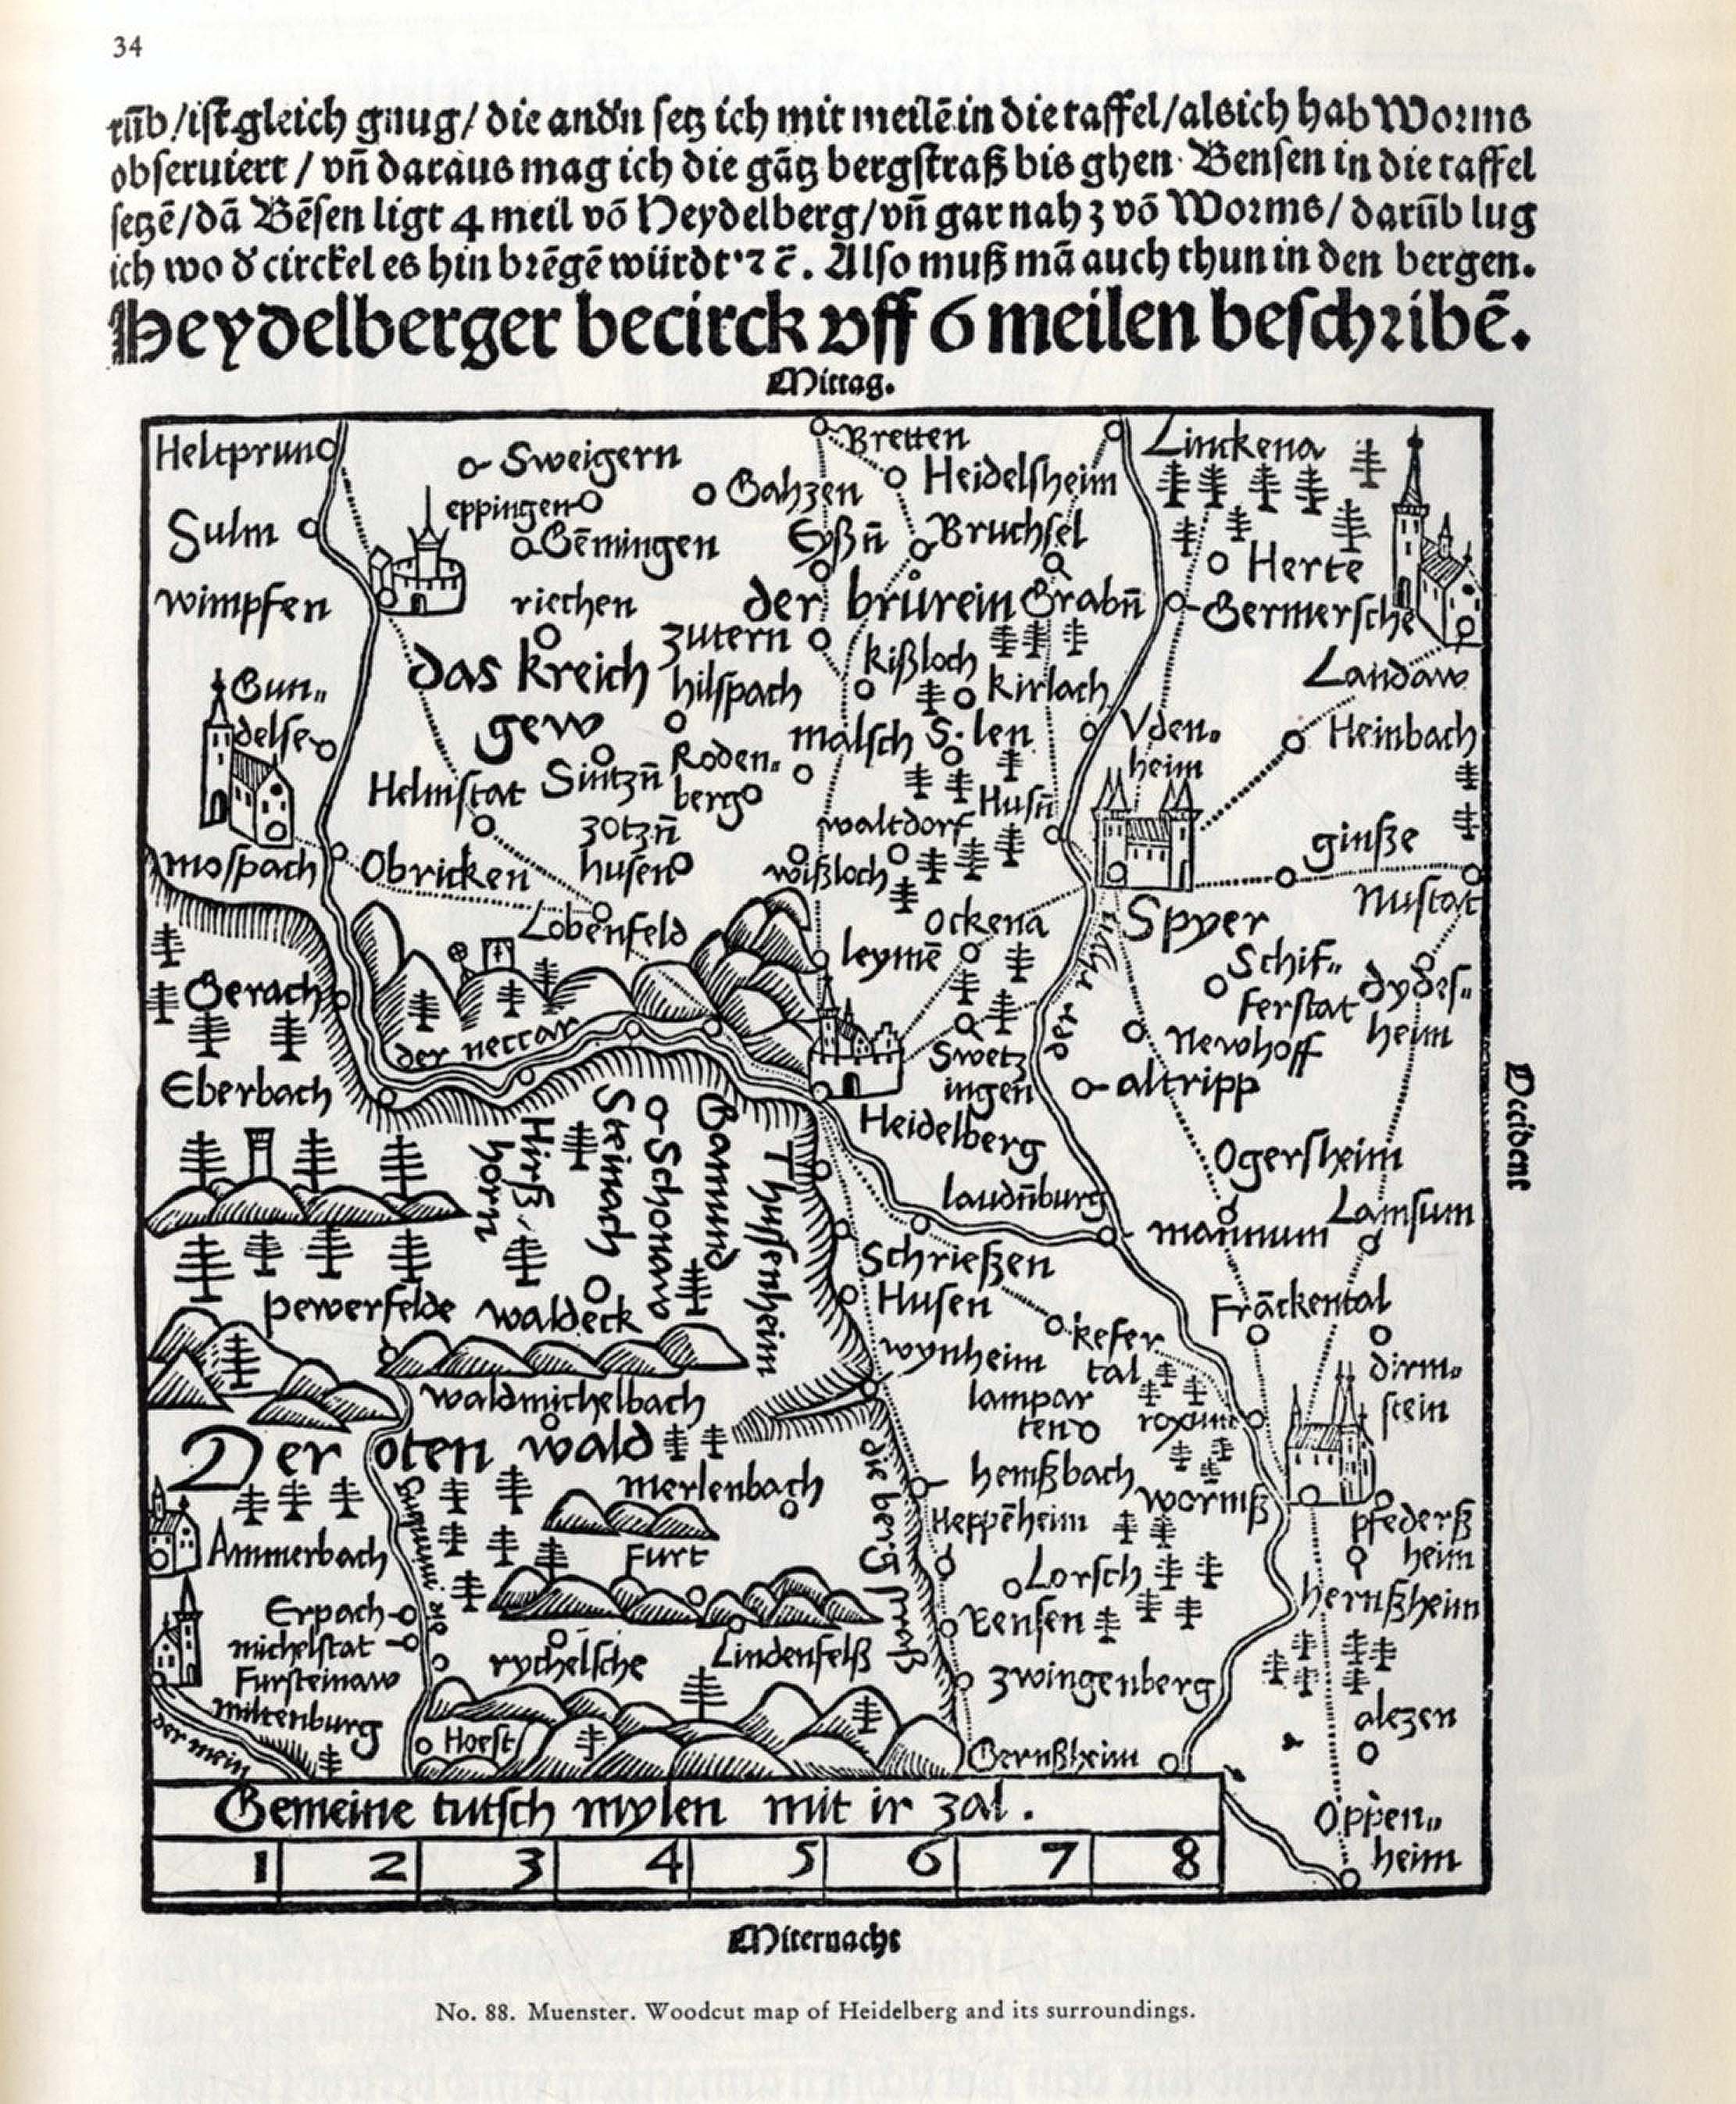 34
rūb/ist gleich gnug/ die andñ setz ich mit meilē in die taffel/als ich hab Worms
obseruiert / vñ daraus mag ich die gātz bergstraß bis ghen Bensen in die taffel
setzē/dā Bēsen ligt 4 meil võ Heydelberg/vñ gar nah 3 võ Worms/ darūb lug
ich wo d circkel es hin brēgē würdt ⁊ c̄. Also muß mā auch thun in den bergen.
Heydelberger becirck vff 6 meilen beschribē.
Mittag.
Heltprund
Sweigern
Bretten
Linckena
Gahzen
Heidelsheim
eppingen
Sulm
Gēmingen
Eyßn̄
Bruchsel
Herte
wimpfen
riechen
der brürein
Grabn̄
Germersche
zutern
kißloch
kirlach
Landaw
das kreich
gew
hilspach
Gun„
delse
malsch
S. len
Vden„
heim
Heinbach
Helmstat
Sintzn̄
Roden„
berg
Husn̄
waltdorf
zotzn̄
husen
ginße
mospach
Obricken
wißloch
Nustat
Lobenfeld
Ockena
Spyer
leymē
Schif„
ferstat
dydes„
heim
Gerach
der neccar
der rhyn
Newhoff
Swetz
ingen
altripp
Eberbach
Heidelberg
Occident
Hirß
horn
Steinach
Schonaw
Gammund
Thussenheim
Ogersheim
laudn̄burg
mannum
Lamsum
Schrießen
pewerfelde
waldeck
Husen
Frāckental
kefer
tal
wynheim
dirm„
stein
waldmichelbach
lampar
ten
roxum
Der oten wald
merlenbach
hemßbach
wormß
die berg straß
Heppēheim
pfederß
heim
Ammerbach
Furt
Lorsch
hernßheim
Erpach
Bensen
michelstat
rychelsche
Lindenfelß
Fursteinaw
zwingenberg
miltenburg
alezen
der mein
Horst
Gernßheim
Gemeine tutsch mylen mit ir zal.
Oppen„
heim
1 2 3 4 5 6 7 8
Mitternacht
No. 88. Muenster. Woodcut map of Heidelberg and its surroundings.